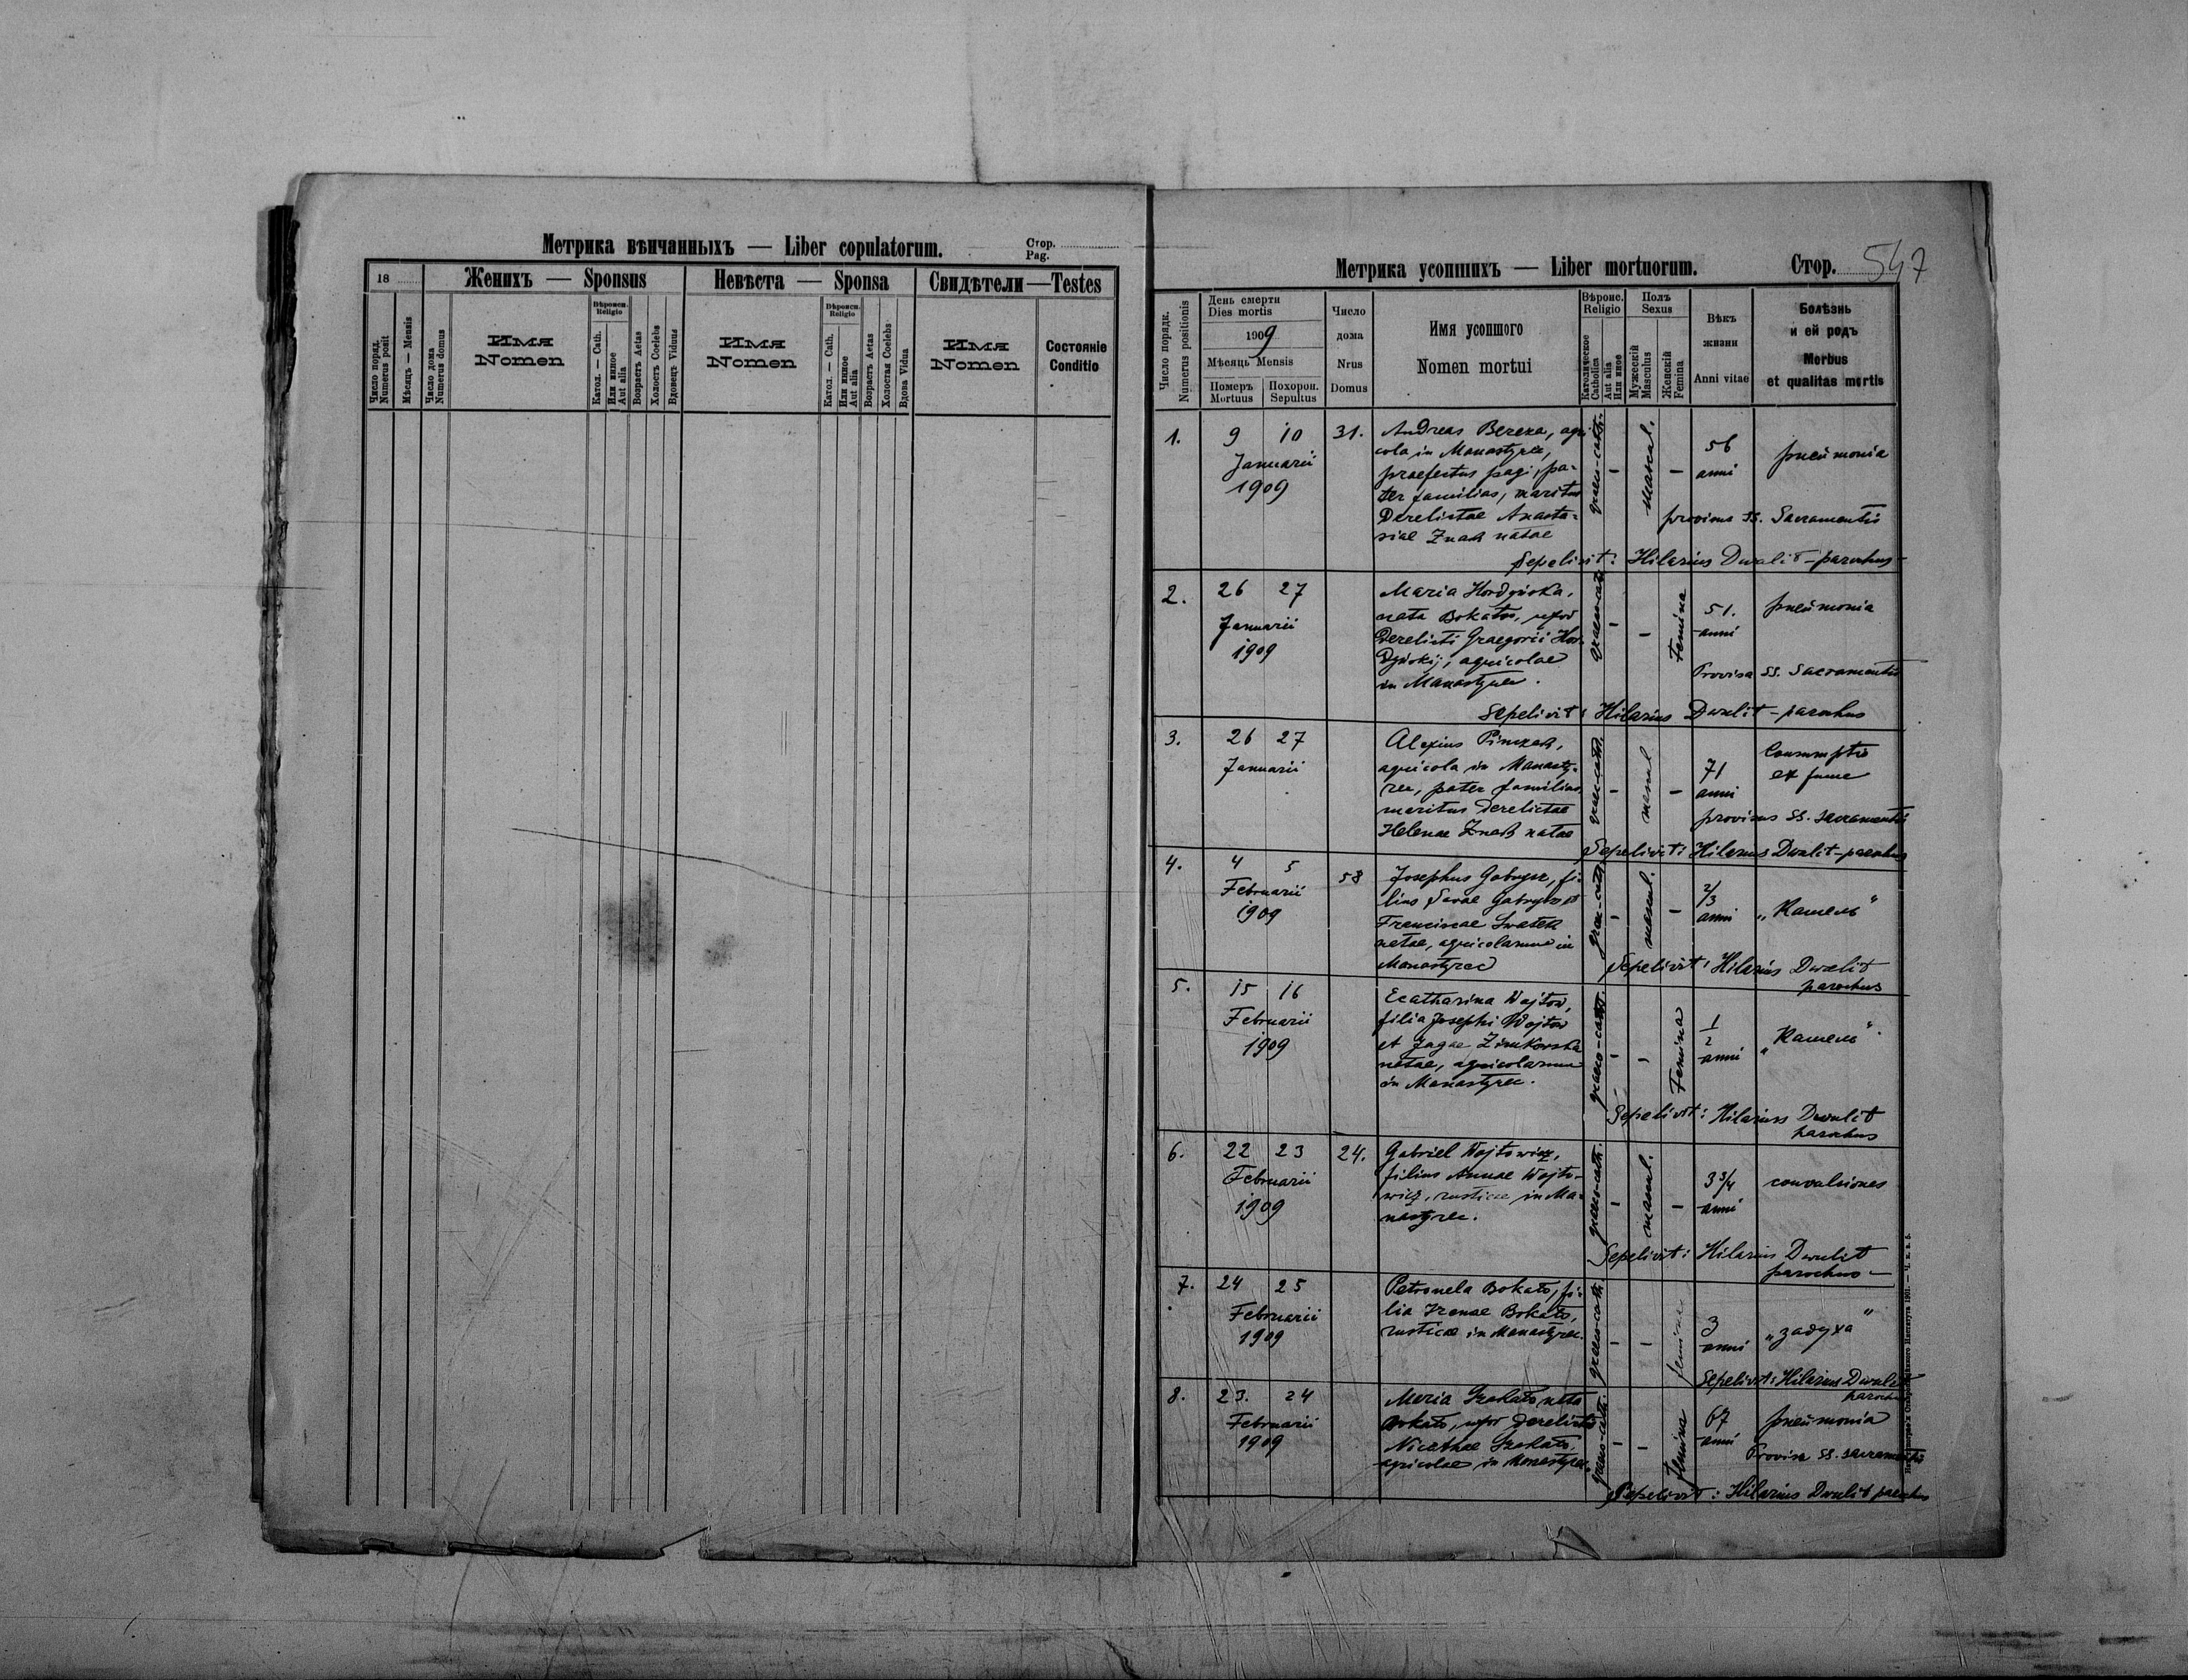 Метрика вѣнчанныхъ — Liber copulatorum.
Стор.
Pag.
18
Женихъ — Sponsus
Невѣста — Sponsa
Свидѣтели — Testes
Число поряд.
Numerus posit
Мѣсяцъ — Mensis
Число дома
Numerus domus
Имя
Nomen
Вѣроисп.
Religio
Катол. — Cath.
Или иное
Aut alia
Возрастъ Aetas
Холостъ Coelebs
Вдовецъ Viduus
Имя
Nomen
Вѣроисп.
Religio
Катол. — Cath.
Или иное
Aut alia
Возрастъ Aetas
Холостая Coelebs
Вдова Vidua
Имя
Nomen
Состояніе
Conditio
Метрика усопшихъ — Liber mortuorum.
Стор. 547
Число порядк.
Numerus positionis
День смерти
Dies mortis
1909
Мѣсяць Mensis
Померъ
Mortuus
Похорон.
Sepultus
Число
дома
Nrus
Domus
Имя усопшого
Nomen mortui
Вѣроис.
Religio
Католическое
Catholica
Aut alia
Или иное
Полъ
Sexus
Мужескій
Masculus
Женскій
Femina
Вѣкъ
жизни
Anni vitae
Болѣзнь
и ей родъ
Morbus
et qualitas mortis
1. 9 10 31.
Januarii
1909
Andreas Bereza, agri
cola in Manastyrec,
praefectus pagi, pa-
ter familias, maritus
Derelictae Anasta-
siae Znak natae
graeco-cath. - mascul. -
56
anni
pneumonia
provisus SS. Sacramentis
Sepelivit: Hilarius Dwulit - parochus -
2. 26 27
Januarii
1909
Maria Hordyjska,
nata Bokało, uxor
Derelicti Graegorii Hor
Dyjskij, agricolae
in Manastyrec.
graeco-cath. - - Femina
51.
anni
pneumonia
Provisa SS. Sacramentis
Sepelivit: Hilarius Dwulit - parochus
3. 26 27
Januarii
Alexius
agricola in Manasty-
rec, pater familias
maritus derelictae
Helenae Znak natae
graeco-cath. - mascul -
71
anni
Consumptio
ex fame
provisus SS. sacramentis
Sepelivit: Hilarius Dwulit - parochus
4. 4 5 58
Februarii
1909
Josephus Gabrysz, fi-
lius Savae Gabrysz et
Franciscae
natae, agricolarum in
Manastyrec
graeco-cath. - mascul. -
2/3
anni
„Кашель"
Sepelivit: Hilarius Dwulit
parochus
5. 15 16
Februarii
1909
Ecatharina Wojtow,
filia Josephi Wojtow
et Jagae
natae, agricolarum
in Manastyrec.
graeco-cath. - - Femina
1/2
anni
„Кашель".
Sepelivit: Hilarius Dwulit
parochus
6. 22 23 24.
Februarii
1909
Gabriel Wojtowicz,
filius Annae Wojto-
wicz, rusticae in Ma-
nastyrec.
graeco-cath. - mascul. -
3 3/4
anni
convulsiones
Sepelivit: Hilarius Dwulit
parochus -
7. 24 25
Februarii
1909
Petronela Bokało, fi-
lia Irenae Bokało,
rusticae in Manastyrec.
graeco-cath. - - femina
3
anni
„задуха"
Sepelivit: Hilarius Dwulit
parochus
8. 23. 24
Februarii
1909
Maria nata
Bokało, uxor derelicti
Nicethae
agricolae in Manastyrec.
graeco-cath. - - femina
67
anni
pneumonia
Provisa SS. sacramentis
Sepelivit: Hilarius Dwulit parochus